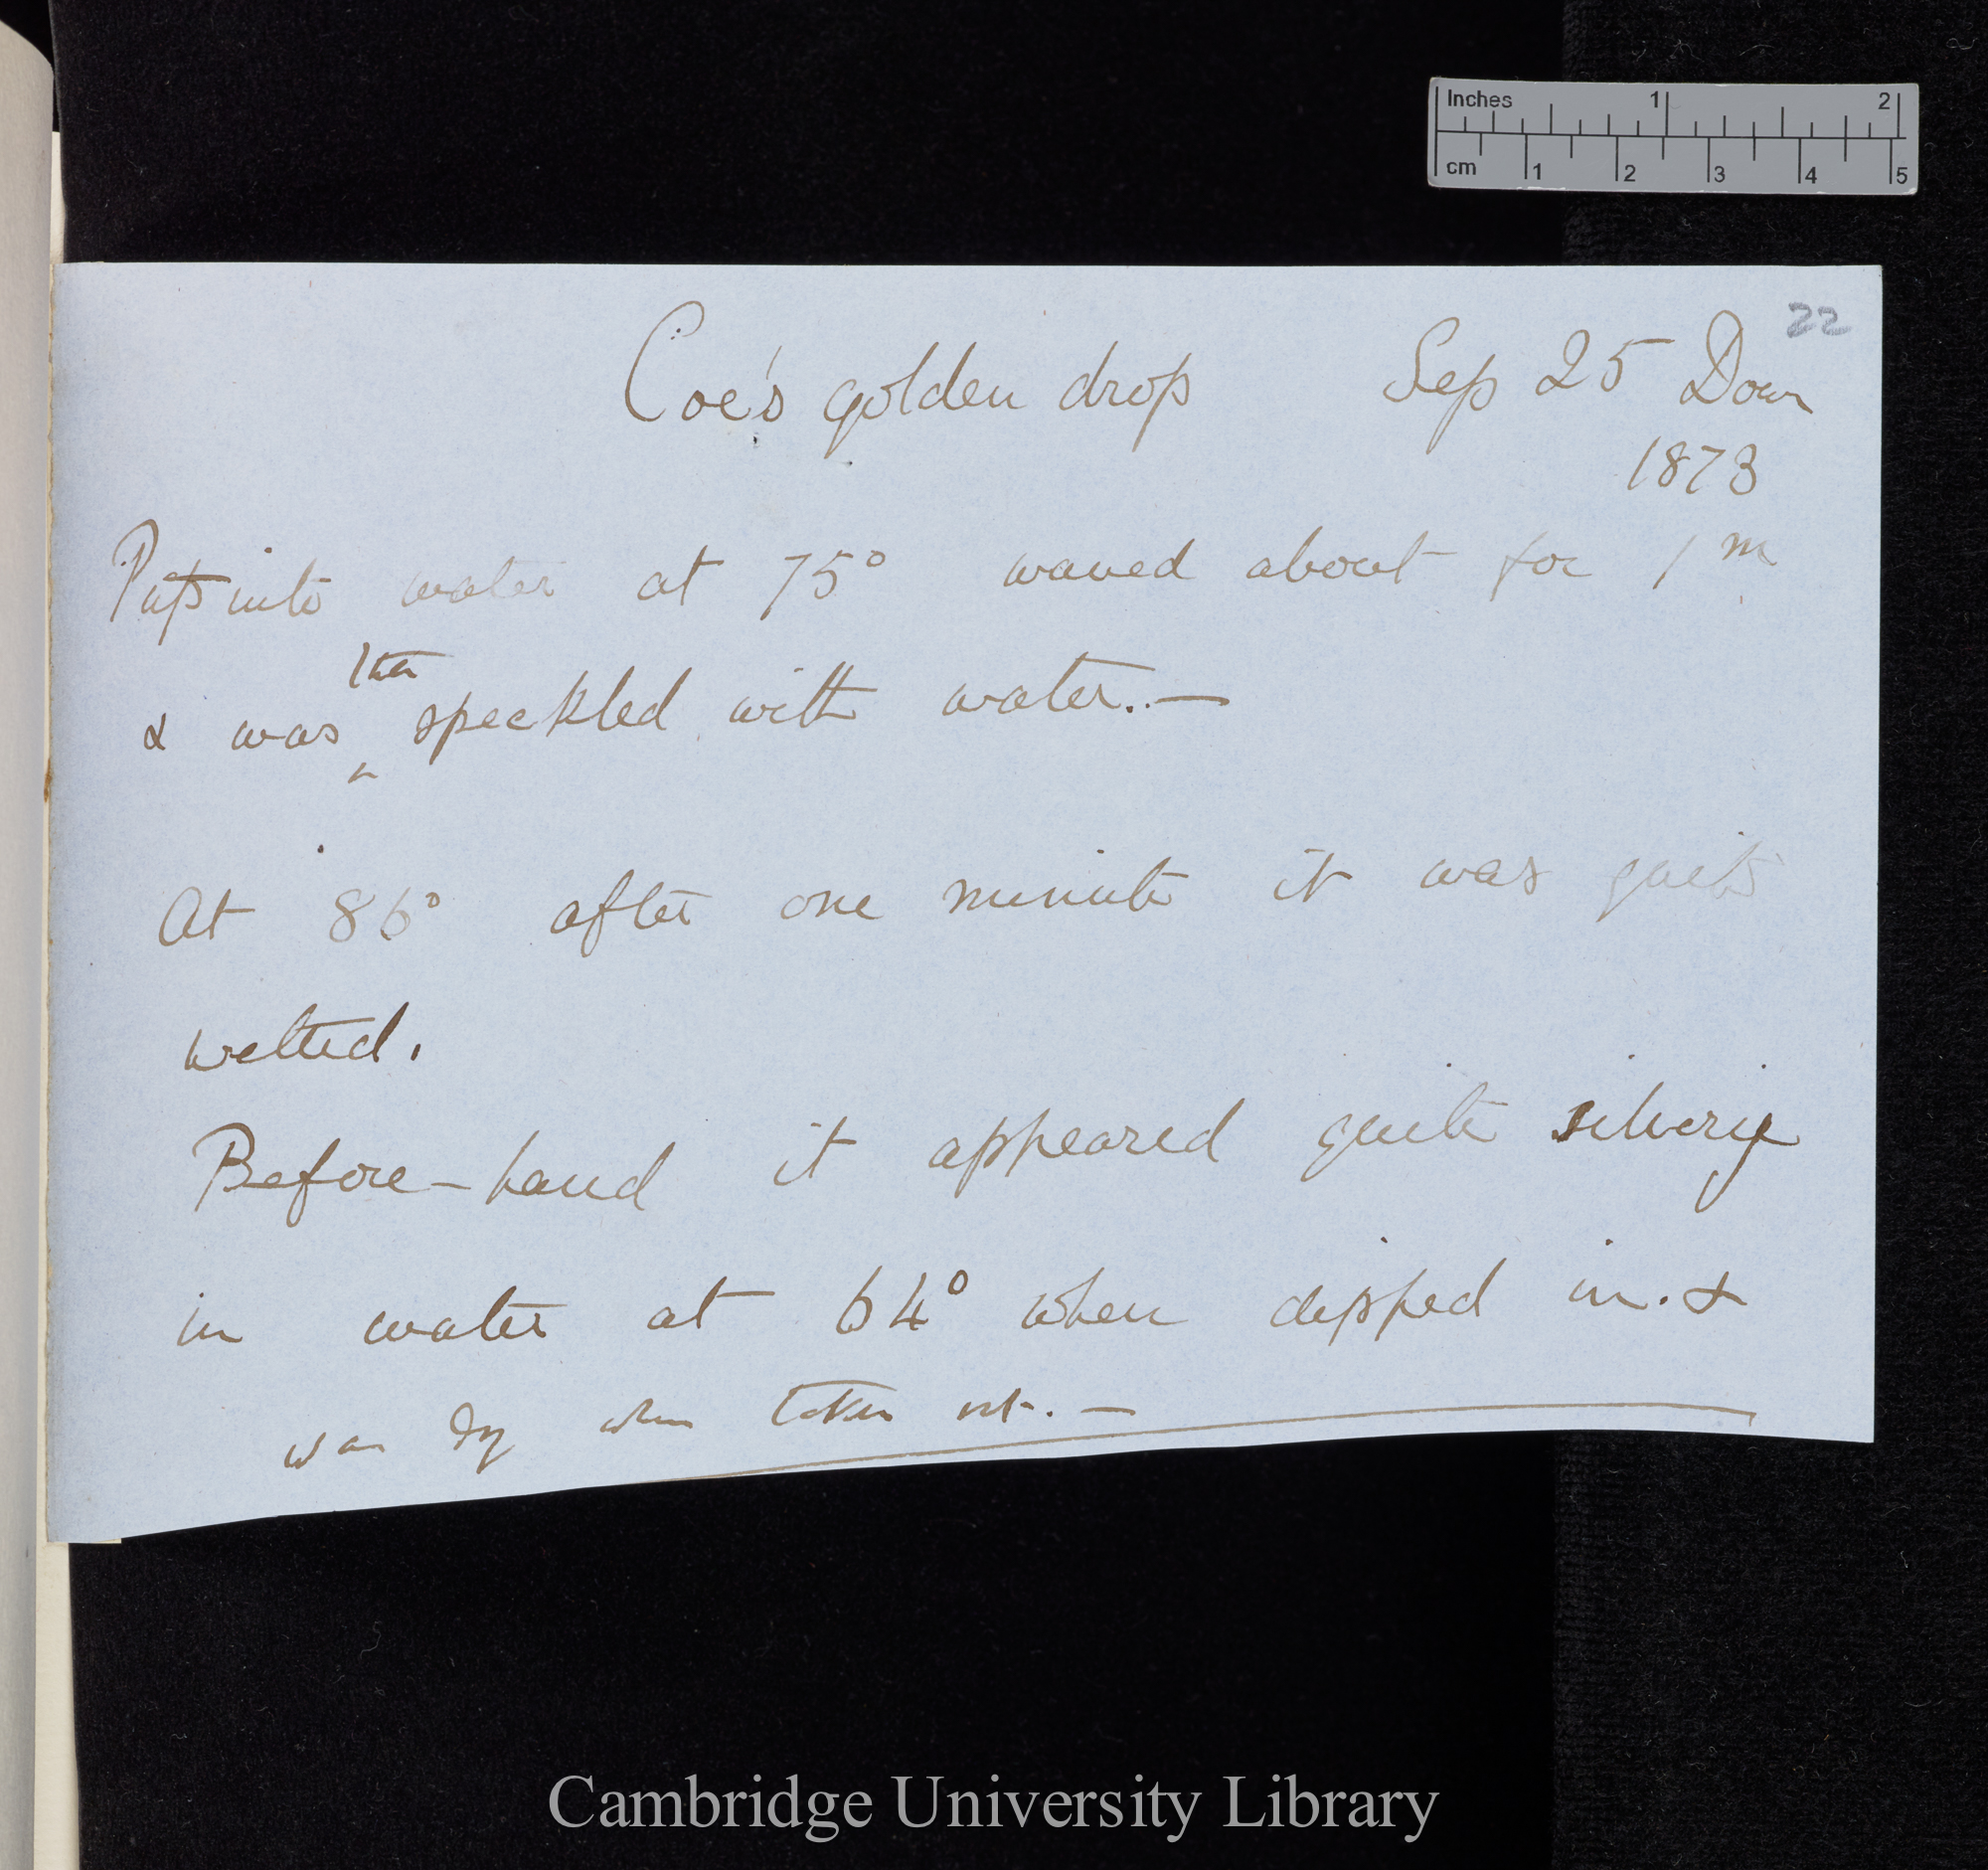 Inches 1 2
cm 1 2 3 4 5
22
Coe's golden drop Sep 25 Down
1873
Put into water at 75° waved about for 1 m
then
& was speckled with water.—
At 86° after one minute it was quite
wetted.
Before-hand it appeared quite silvery
in water at 64° when dipped in. &
was dry when taken out.—
Cambridge University Library